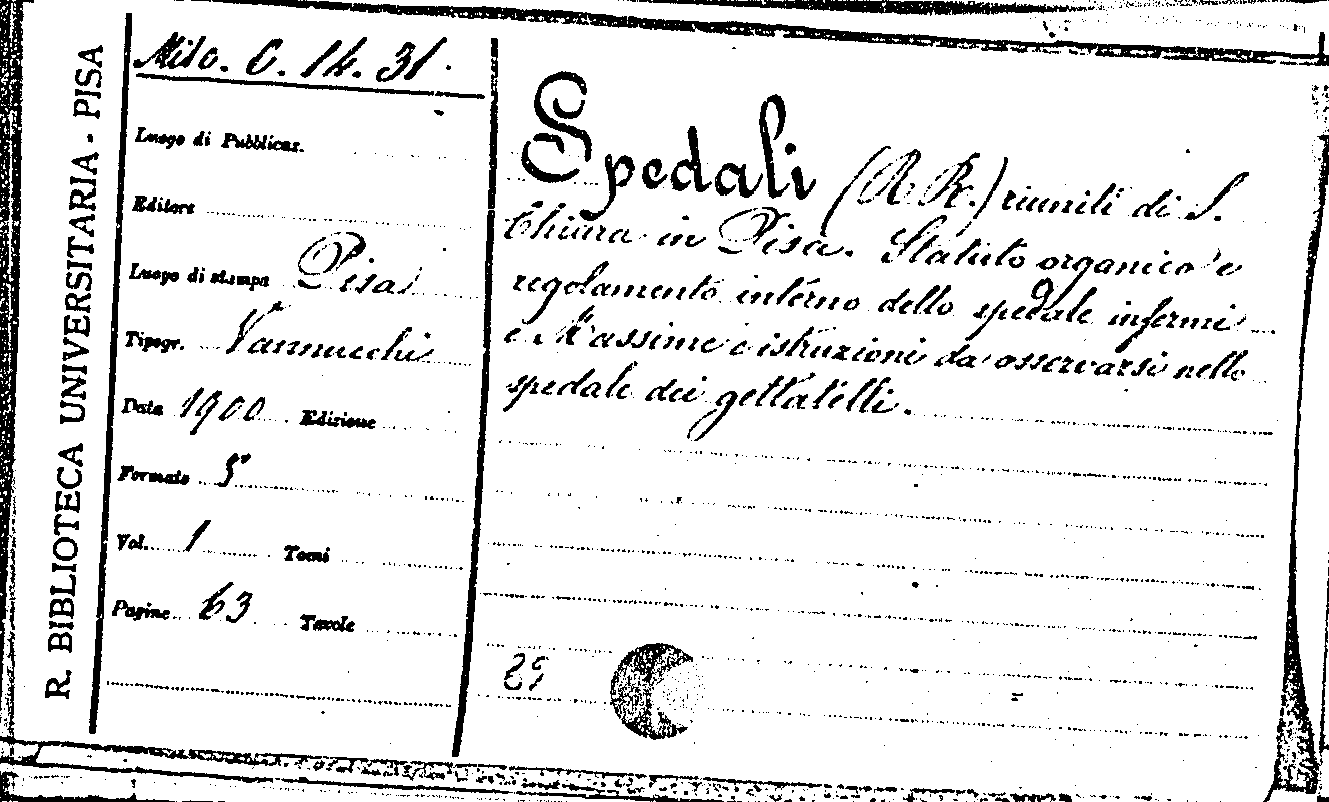 R. BIBLIOTECA UNIVERSITARIA - PISA
Misc. C. 14. 31.
Luogo di Pubblicaz.
Editore
Luogo di stampa Pisa
Tipogr. Vannucchi
Data 1900 Edizione
Formato 8°
Vol. 1 Tomi
Pagine 63 Tavole
Spedali (R R.) riuniti di S.
Chiara in Pisa. Statuto organico e
regolamento interno dello spedale infermi
e Massime e istruzioni da osservarsi nello
spedale dei gettatelli.